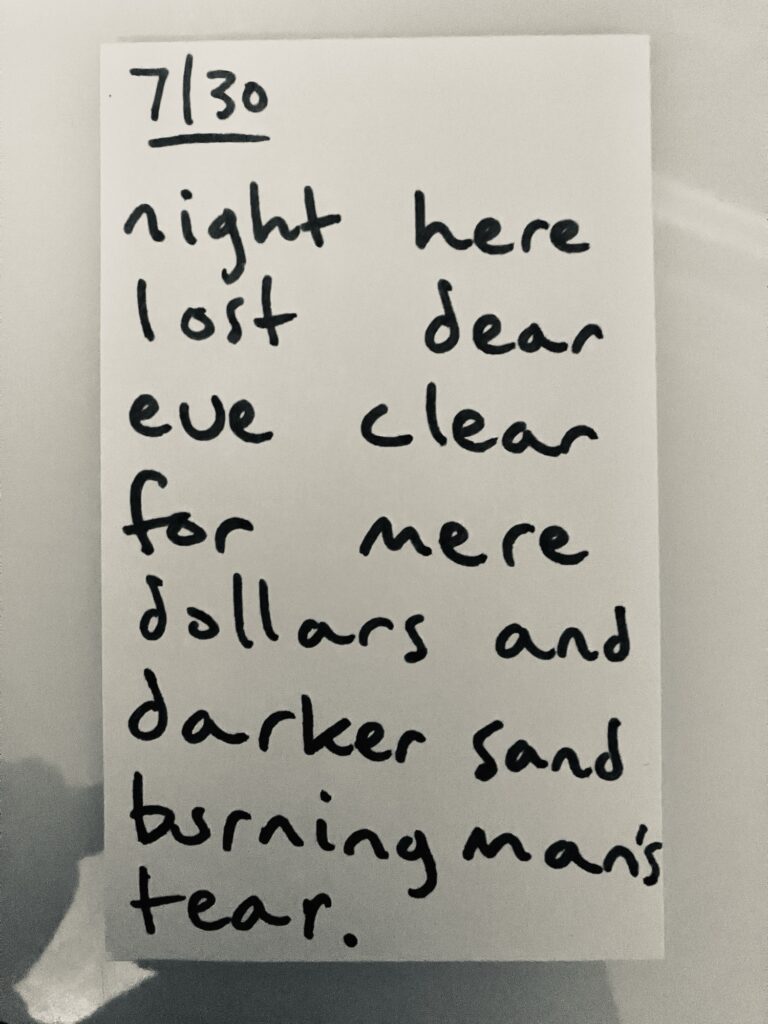 7/30
night here
lost dear
eve clear
for mere
dollars and
darker sand
burning man's
tear.